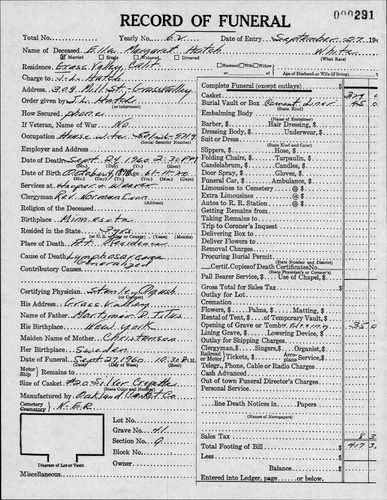 000291
RECORD OF FUNERAL
Total No. Yearly No. 62 Date of Entry September 27, 19
Name of Deceased Ella Margaret Hatch White
Married Single Widowed Divorced (What Race)
Residence Grass Valley, Calif. Husband Widow
or Age of Husband or Wife (if living)
Charge to John Hatch
Address 309 Mill St. Grass Valley
Order given by Jno. Hatch
(or informant)
How secured phone
If Veteran, Name of War No
Occupation House wife
Employer and Address
Date of Death Sept. 24 1960 2:30 PM
Date of Birth October 4, 1892
Services at Hooper & Weaver
Clergyman Rev. Norman Conn
Religion of the Deceased
Birthplace Minnesota
Resided in the State 3 yrs
Place of Death At Residence
Cause of Death Lymphosarcoma
Generalized
Contributory Causes
Certifying Physician Stanley
His Address Grass Valley
Name of Father Hartyman A. Titus
His Birthplace New York
Maiden Name of Mother Christensen
Her Birthplace Sweden
Date of Funeral Sept 27 1960 10:30 A.M.
Motor Ship Remains to
Size of Casket Silver Crepette
Manufactured by Oakland Casket Co.
Cemetery
Crematory
Lot No.
Grave No. 41
Section No. 9
Block No.
Owner
Diagram of Lot or Vault
Miscellaneous
Complete Funeral (except outlays) $
Casket
Burial Vault or Box Cement Liner 45 0
Embalming Body
(Name of Embalmer)
Barber, Hair Dressing, $
Dressing Body, $ Underwear, $
Suit or Dress
(State Kind and Color)
Slippers, $ Hose, $
Folding Chairs, $ Tarpaulin, $
Candelabrum, $ Candles, $
Door Spray, $ Gloves, $
Funeral Car, $ Ambulance, $
Limousines to Cemetery @ $
Extra Limousines @ $
Autos to R. R. Station @ $
Getting Remains from
Taking Remains to
Trip to Coroner's Inquest
Delivering Box to
Deliver Flowers to
Removal Charges
(State Number and District)
Procuring Burial Permit
Certif. Copies of Death Certificates No.
(State Physician's or Coroner's)
Pall Bearer Service, $ Use of Chapel, $
Gross Total for Sales Tax $
Outlay for Lot
Cremation
Flowers, $ Palms, $ Matting, $
Rental of Tent, $ of Temporary Vault, $
Opening of Grave or Tomb 35 0
Lining Grave, $ Lowering Device, $
Outlay for Shipping Charges
Clergyman, $ Singers, $ Organist, $
Railroad or Motor Tickets, $ Aeroplane Service, $
Telegr., Phone, Cable or Radio Charges
Cash Advanced
Out of town Funeral Director's Charges
Personal Service
line Death Notices in Papers
(Names of Newspapers)
Sales Tax 8 3
Total Footing of Bill 417 3
Less
Balance $
Entered into Ledger, page or below.